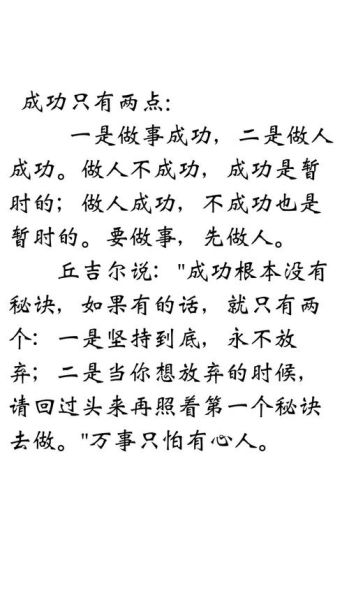 成功只有两点：
一是做事成功，二是做人
成功。做人不成功，成功是暂
时的；做人成功，不成功也是
暂时的。要做事，先做人。
丘吉尔说："成功根本没有
秘诀，如果有的话，就只有两
个：一是坚持到底，永不放
弃；二是当你想放弃的时候，
请回过头来再照着第一个秘诀
去做。"万事只怕有心人。